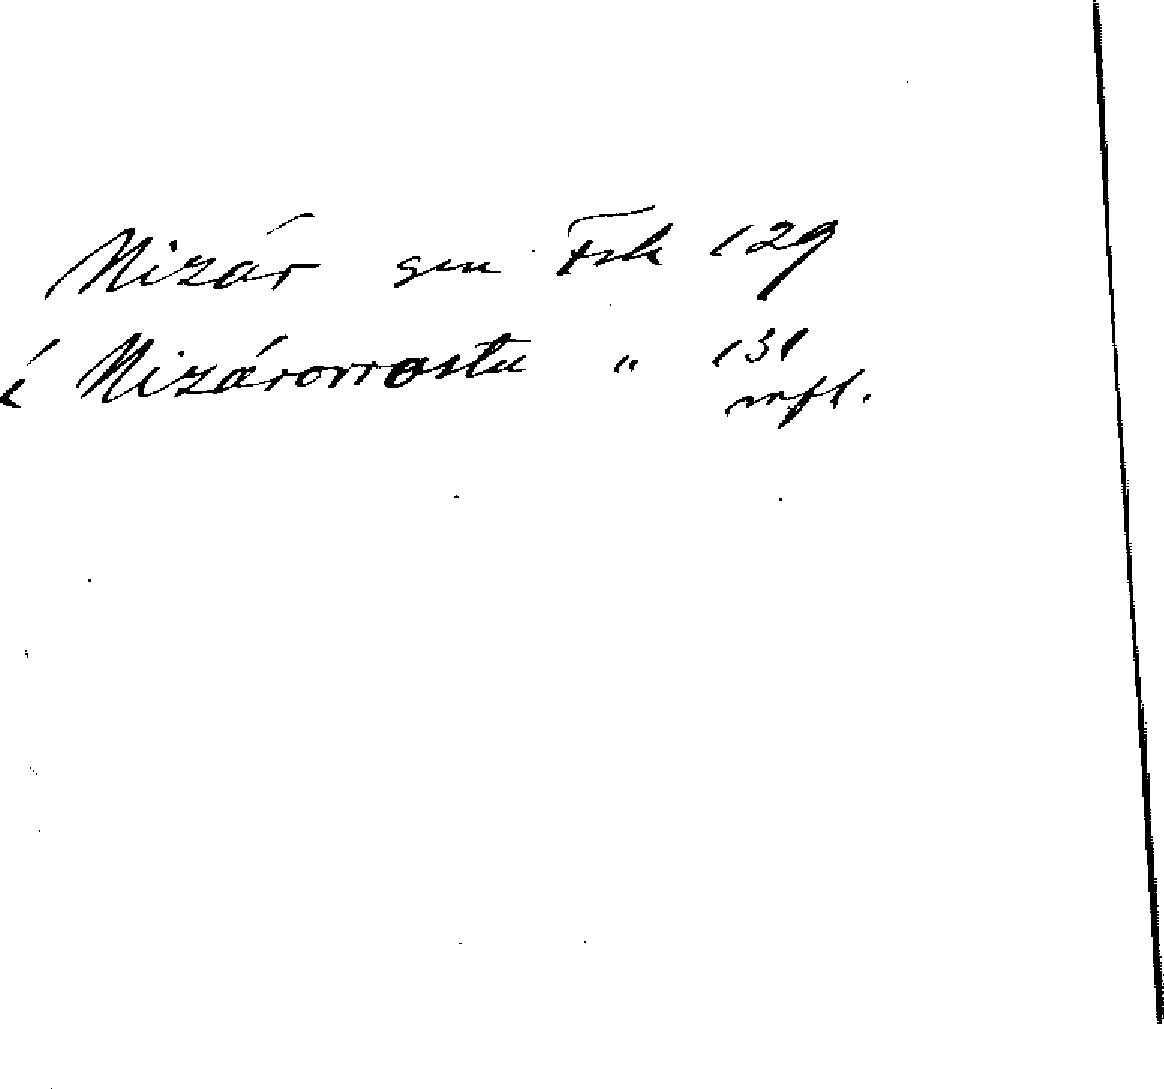 Nizár gen Fsk 129
í Nizárorrostu " 131
mfl.